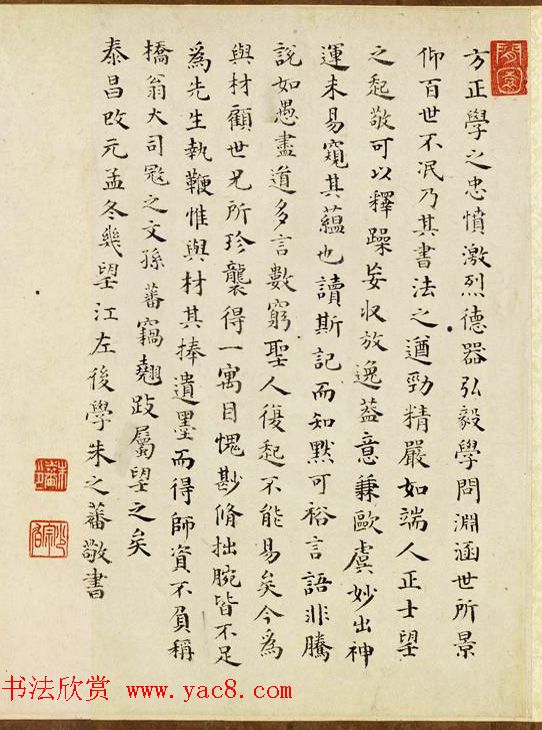 方正學之忠憤激烈德器弘毅學問淵涵世所景
仰百世不泯乃其書法之遒勁精嚴如端人正士望
之起敬可以釋躁妄收放逸蓋意兼歐虞妙出神
運未易窺其蘊也讀斯記而知默可裕言語非騰
說如愚盡道多言數窮聖人復起不能易矣今為
與材顧世兄所珍襲得一寓目愧尠脩拙腕皆不足
為先生執鞭惟與材其捧遺墨而得師資不負稱
橋翁大司寇之文孫蕃竊翹跂屬望之矣
泰昌改元孟冬幾望江左後學朱之蕃敬書
书法欣赏 www.yac8.com